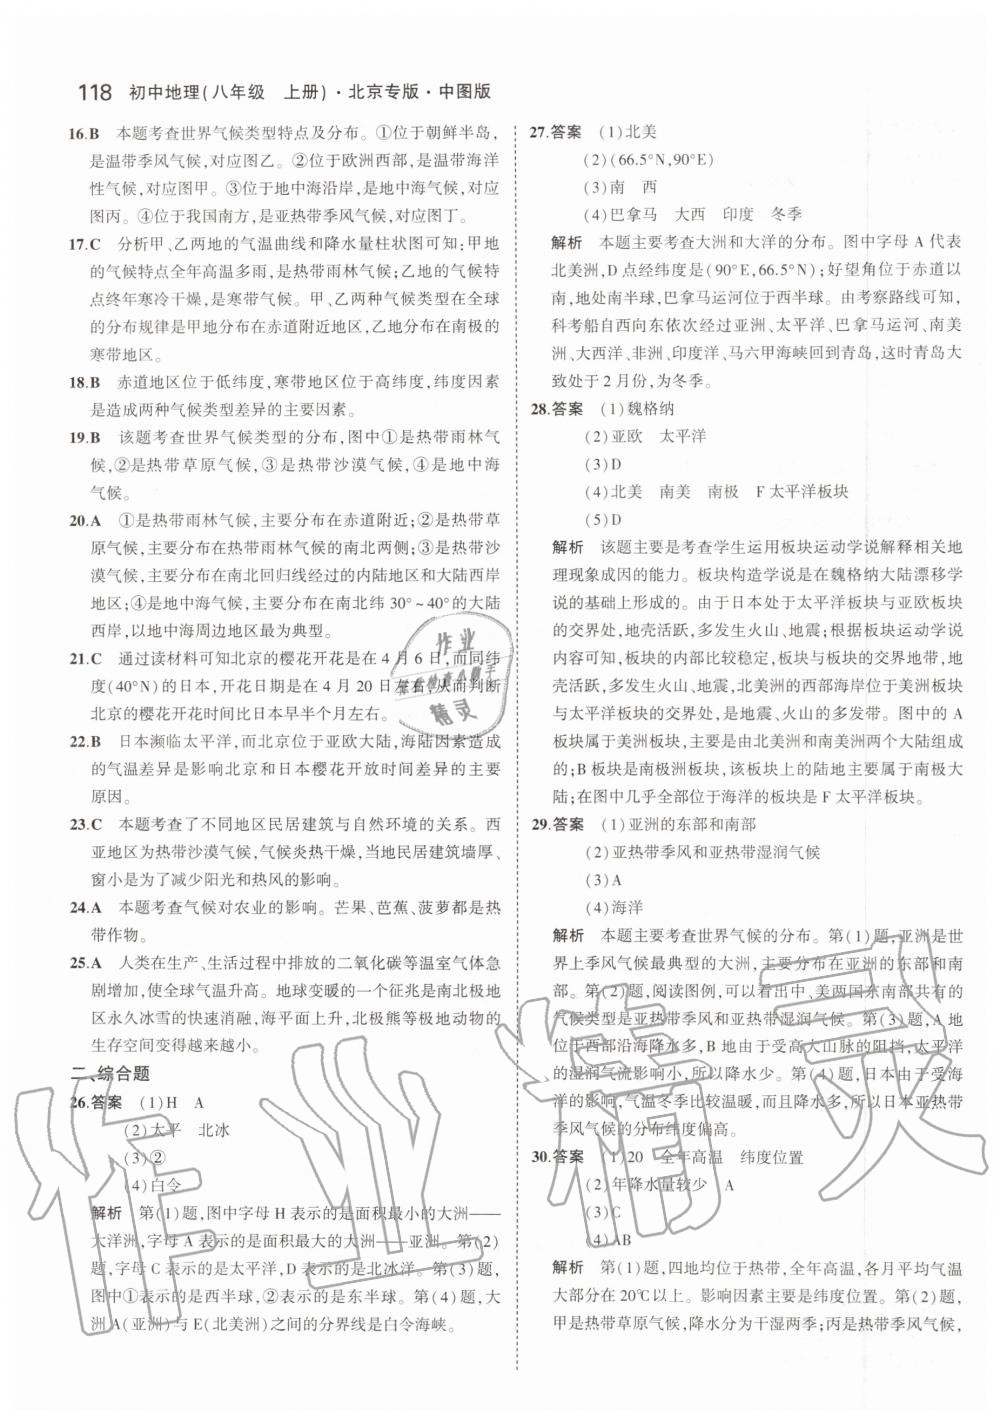 118 初中地理(八年级 上册)·北京专版·中图版
16.B 本题考查世界气候类型特点及分布。①位于朝鲜半岛,
是温带季风气候,对应图乙。②位于欧洲西部,是温带海洋
性气候,对应图甲。③位于地中海沿岸,是地中海气候,对应
图丙。④位于我国南方,是亚热带季风气候,对应图丁。
17.C 分析甲、乙两地的气温曲线和降水量柱状图可知:甲地
的气候特点全年高温多雨,是热带雨林气候;乙地的气候特
点终年寒冷干燥,是寒带气候。甲、乙两种气候类型在全球
的分布规律是甲地分布在赤道附近地区,乙地分布在南极的
寒带地区。
18.B 赤道地区位于低纬度,寒带地区位于高纬度,纬度因素
是造成两种气候类型差异的主要因素。
19.B 该题考查世界气候类型的分布,图中①是热带雨林气
候,②是热带草原气候,③是热带沙漠气候,④是地中海
气候。
20.A ①是热带雨林气候,主要分布在赤道附近;②是热带草
原气候,主要分布在热带雨林气候的南北两侧;③是热带沙
漠气候,主要分布在南北回归线经过的内陆地区和大陆西岸
地区;④是地中海气候,主要分布在南北纬30°~40°的大陆
西岸,以地中海周边地区最为典型。
21.C 通过读材料可知北京的樱花开花是在4月6日,而同纬
度(40°N)的日本,开花日期是在4月20日左右,从而判断
北京的樱花开花时间比日本早半个月左右。
22.B 日本濒临太平洋,而北京位于亚欧大陆,海陆因素造成
的气温差异是影响北京和日本樱花开放时间差异的主要
原因。
23.C 本题考查了不同地区民居建筑与自然环境的关系。西
亚地区为热带沙漠气候,气候炎热干燥,当地民居建筑墙厚、
窗小是为了减少阳光和热风的影响。
24.A 本题考查气候对农业的影响。芒果、芭蕉、菠萝都是热
带作物。
25.A 人类在生产、生活过程中排放的二氧化碳等温室气体急
剧增加,使全球气温升高。地球变暖的一个征兆是南北极地
区永久冰雪的快速消融,海平面上升,北极熊等极地动物的
生存空间变得越来越小。
二、综合题
26.答案 (1)H A
(2)太平 北冰
(3)②
(4)白令
解析 第(1)题,图中字母H表示的是面积最小的大洲——
大洋洲,字母A表示的是面积最大的大洲——亚洲。第(2)
题,字母C表示的是太平洋,D表示的是北冰洋。第(3)题,
图中①表示的是西半球,②表示的是东半球。第(4)题,大
洲A(亚洲)与E(北美洲)之间的分界线是白令海峡。
27.答案 (1)北美
(2)(66.5°N,90°E)
(3)南 西
(4)巴拿马 大西 印度 冬季
解析 本题主要考查大洲和大洋的分布。图中字母A代表
北美洲,D点经纬度是(90°E,66.5°N);好望角位于赤道以
南,地处南半球,巴拿马运河位于西半球。由考察路线可知,
科考船自西向东依次经过亚洲、太平洋、巴拿马运河、南美
洲、大西洋、非洲、印度洋、马六甲海峡回到青岛,这时青岛大
致处于2月份,为冬季。
28.答案 (1)魏格纳
(2)亚欧 太平洋
(3)D
(4)北美 南美 南极 F太平洋板块
(5)D
解析 该题主要是考查学生运用板块运动学说解释相关地
理现象成因的能力。板块构造学说是在魏格纳大陆漂移学
说的基础上形成的。由于日本处于太平洋板块与亚欧板块
的交界处,地壳活跃,多发生火山、地震;根据板块运动学说
内容可知,板块的内部比较稳定,板块与板块的交界地带,地
壳活跃,多发生火山、地震,北美洲的西部海岸位于美洲板块
与太平洋板块的交界处,是地震、火山的多发带。图中的A
板块属于美洲板块,主要是由北美洲和南美洲两个大陆组成
的;B板块是南极洲板块,该板块上的陆地主要是南极大
陆;在图中几乎全部位于海洋的板块是F太平洋板块。
29.答案 (1)亚洲的东部和南部
(2)亚热带季风和亚热带湿润气候
(3)A
(4)海洋
解析 本题主要考查世界气候的分布。第(1)题,亚洲是世
界上季风气候最典型的大洲,主要分布在亚洲的东部和南
部。第(2)题,阅读图例,可以看出中、美两国东南部共有的
气候类型是亚热带季风和亚热带湿润气候。第(3)题,A地
位于西部沿海降水多,B地由于受高大山脉的阻挡,太平洋
的湿润气流影响小,所以降水少。第(4)题,日本由于受海
洋的影响,气温冬季比较温暖,而且降水较多,所以日本亚热带
季风气候的分布纬度偏高。
30.答案 (1)20 全年高温 纬度位置
(2)年降水量较少 A
(3)C
(4)AB
解析 第(1)题,四地均位于热带,全年高温,各月平均气温
大部分在20℃以上。影响因素主要是纬度位置。第(2)题,
甲是热带草原气候,降水分为干湿两季;丙是热带季风气候,
作业
精灵
作业精灵